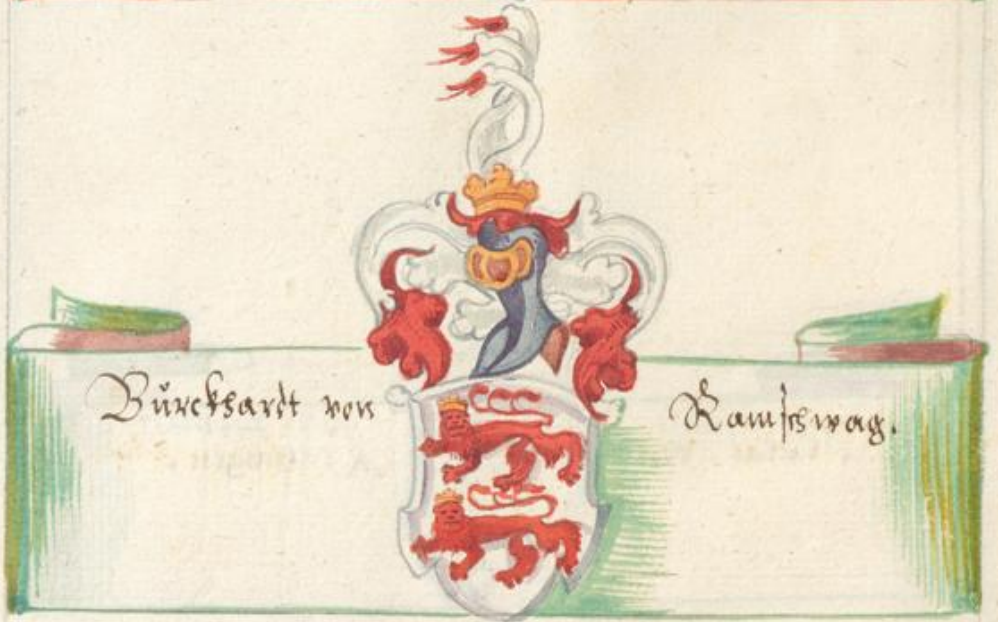 Bürckhardt von Ramschwag.